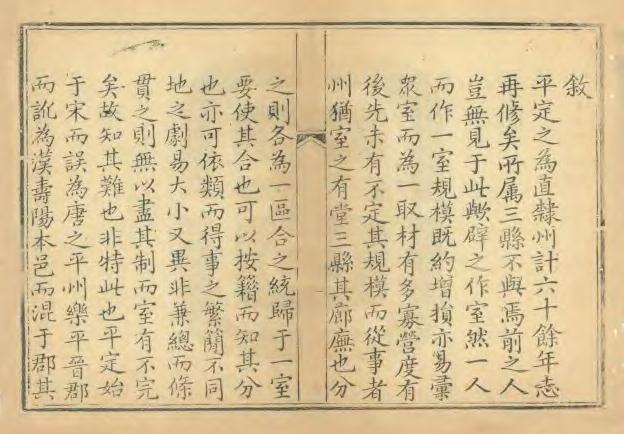 敘
平定之為直隸州計六十餘年志
再修矣所属三縣不與焉前之人
豈無見于此歟辟之作室然一人
而作一室規模既約增損亦易彙
眾室而為一取材有多寡營度有
後先未有不定其規模而從事者
州猶室之有堂三縣其廊廡也分
之則各為一區合之統歸于一室
要使其合也可以按籍而知其分
也亦可依類而得事之繁簡不同
地之劇易大小又異非兼總而條
貫之則無以盡其制而室有不完
矣故知其難也非特此也平定始
于宋而誤為唐之平州樂平晉郡
而訛為漢壽陽本邑而混于郡其